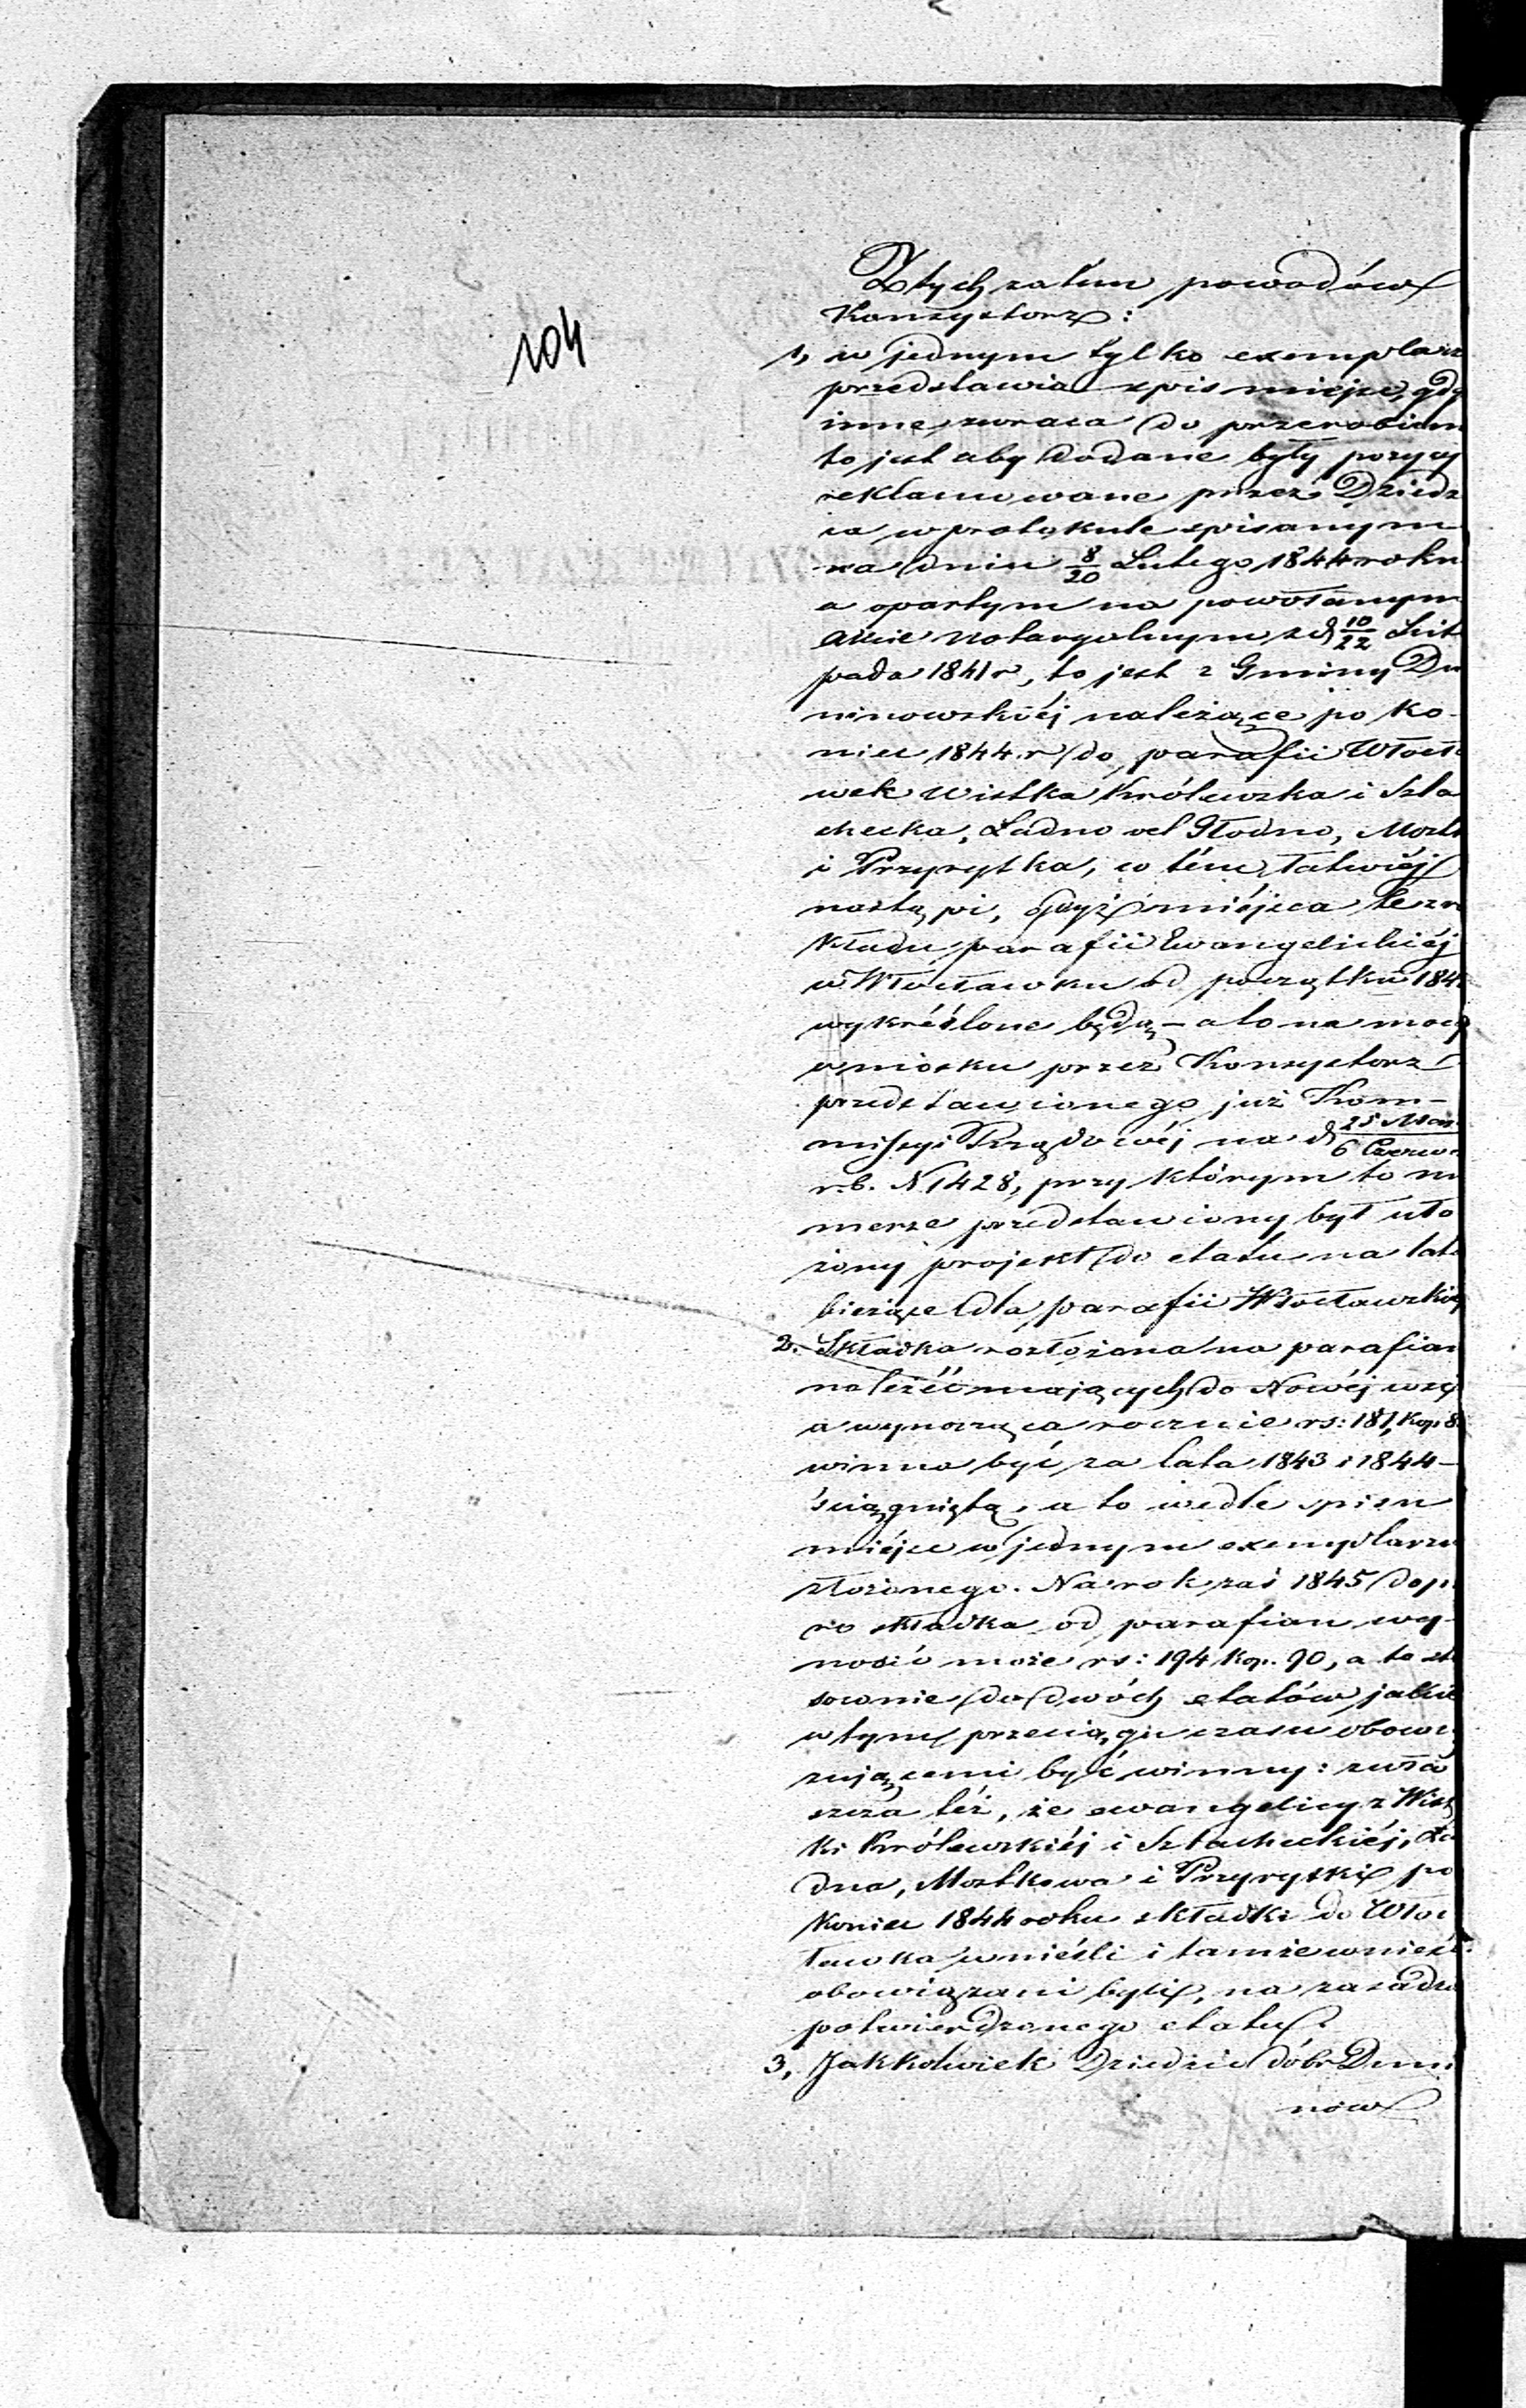 104
Z tych zatem powodów
Konsystorz:
1, w jednym tylko exemplarz
przedstawia spis miejsc, gdy
inne zwraca do przerobien
to jest aby dodane były pozycj
reklamowane przez Dziedz
ica w protokule spisanym
na dniu 8/20 Lutego 1844 roku
a opartym na powołanym
akcie notaryalnym z d 10/22 List
pada 1841 r, to jest z Gminy Du
ninowskiéj należące po ko-
niec 1844 r do parafii Włocła
wek Wistka Królewska i Szla
checka, Ładno vel Głodno, Mostk
i Przyrytka, co tém łatwiéj
nastąpi, gdyż miéjsca te z
kładu parafii Ewangelickiéj
w Włocławku od początku 184
wykréślone będą – a to na mocy
wniosku przez Konsystorz
przedstawionego już Kom-
missyi Rządowéj na d 25 Maj/6 Czerw
r.b. N 1428, przy którym to nu
merze przedstawiony był uło
żony projekt do etatu na lata
bieżące dla parafii Włocławskiéj
2. Składka rozłożona na parafian
należéć mających do Nowéj wsi
a wynosząca rocznie rs: 181, kop. 8
winna być za lata 1843 i 1844 –
ściągnięta, a to wedle spisu
miéjsc w jednym exemplarzu
złożonego. Na rok zaś 1845 dop
ro składka od parafian wy-
nosić może rs: 194 kop. 90, a to st
sownie do dwóch etatów jakie
w tym przeciągu czasu obowią
zującemi być winny: zwła
szcza też, że ewangelicy z Wist
ki Królewskiéj i Szlacheckiéj, Ła
dna, Mostkowa i Przyrytki po
koniec 1844 roku składki do Włoc
ławka wnieśli i tamże wnieść
obowiązani byli, na zasadzie
potwierdzonego etatu.
3, Jakkolwiek Dziedzic dóbr Duni
now